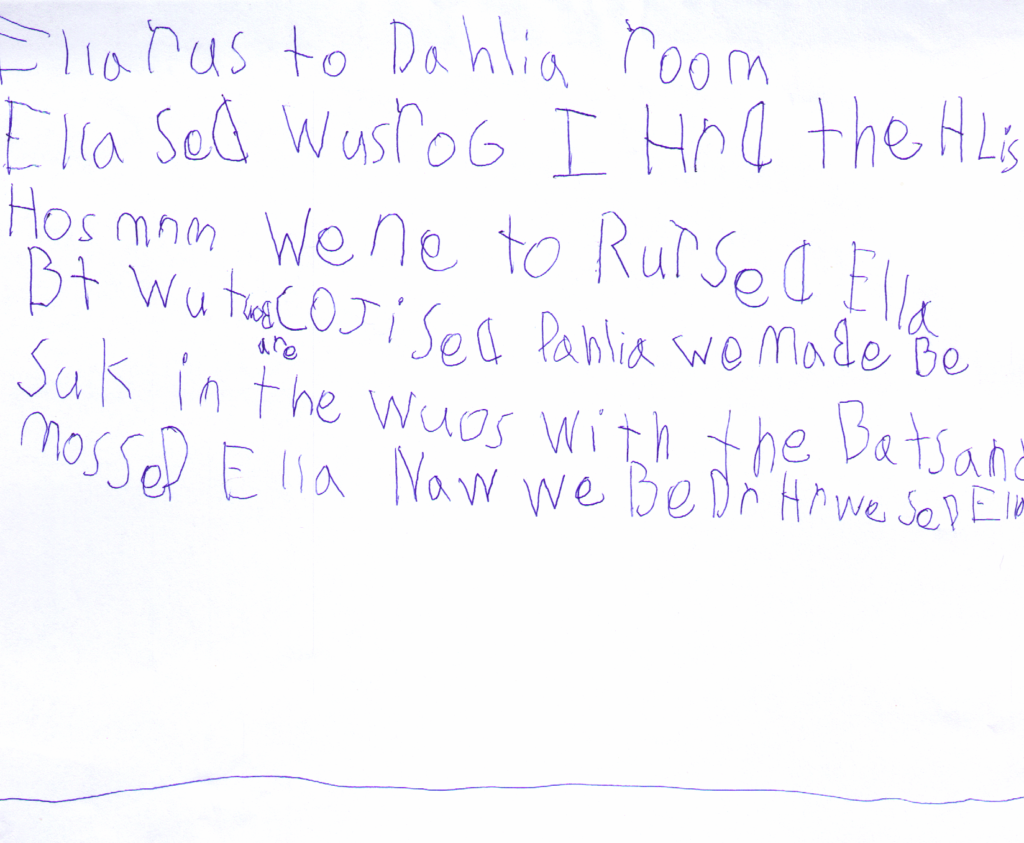 Ella rus to Dahlia room
Ella sed Wusrog I Hrd the HLis
Hos mnm We ne to Rursed Ella
Bt wut COJi sed Dahlia we made Be
are
Suk in the wuos with the Bats and
mossed Ella Naw we Be Dn Hrwe sed Ella